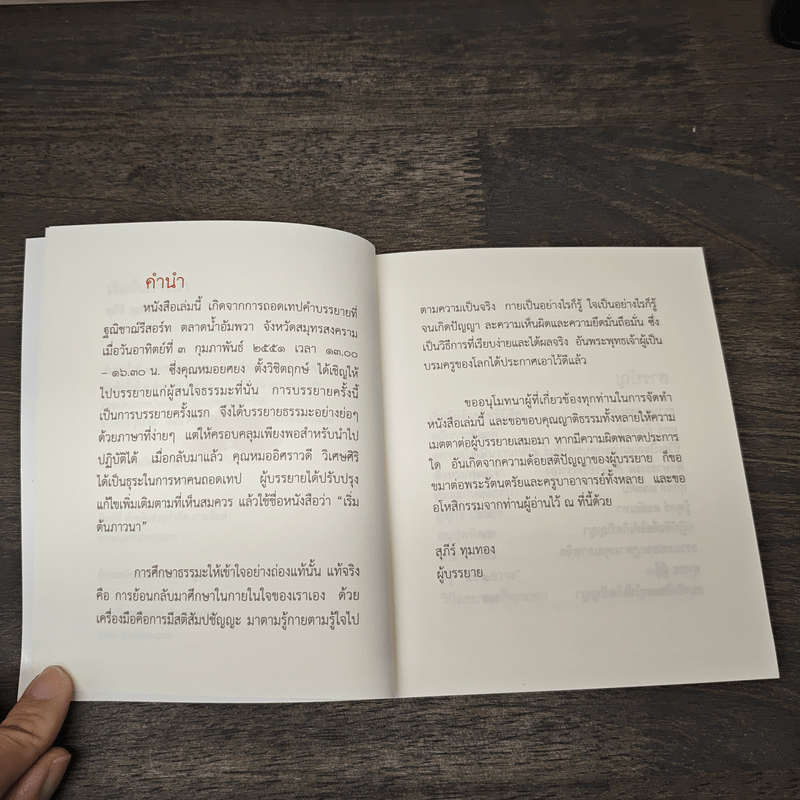 คำนำ
หนังสือเล่มนี้ เกิดจากการถอดเทปคำบรรยายที่
ฐณิชาณ์รีสอร์ท ตลาดน้ำอัมพวา จังหวัดสมุทรสงคราม
เมื่อวันอาทิตย์ที่ ๓ กุมภาพันธ์ ๒๕๕๑ เวลา ๑๓.๐๐
– ๑๖.๓๐ น. ซึ่งคุณหมอยศยง ตั้งวิชิตฤกษ์ ได้เชิญให้
ไปบรรยายแก่ผู้สนใจธรรมะที่นั่น การบรรยายครั้งนี้
เป็นการบรรยายครั้งแรก จึงได้บรรยายธรรมะอย่างย่อๆ
ด้วยภาษาที่ง่ายๆ แต่ให้ครอบคลุมเพียงพอสำหรับนำไป
ปฏิบัติได้ เมื่อกลับมาแล้ว คุณหมออิศราวดี วิเศษศิริ
ได้เป็นธุระในการหาคนถอดเทป ผู้บรรยายได้ปรับปรุง
แก้ไขเพิ่มเติมตามที่เห็นสมควร แล้วใช้ชื่อหนังสือว่า “เริ่ม
ต้นภาวนา”
การศึกษาธรรมะให้เข้าใจอย่างถ่องแท้นั้น แท้จริง
คือ การย้อนกลับมาศึกษาในกายในใจของเราเอง ด้วย
เครื่องมือคือการมีสติสัมปชัญญะ มาตามรู้กายตามรู้ใจไป
ตามความเป็นจริง กายเป็นอย่างไรก็รู้ ใจเป็นอย่างไรก็รู้
จนเกิดปัญญา ละความเห็นผิดและความยึดมั่นถือมั่น ซึ่ง
เป็นวิธีการที่เรียบง่ายและได้ผลจริง อันพระพุทธเจ้าผู้เป็น
บรมครูของโลกได้ประกาศเอาไว้ดีแล้ว
ขออนุโมทนาผู้ที่เกี่ยวข้องทุกท่านในการจัดทำ
หนังสือเล่มนี้ และขอขอบคุณญาติธรรมทั้งหลายให้ความ
เมตตาต่อผู้บรรยายเสมอมา หากมีความผิดพลาดประการ
ใด อันเกิดจากความด้อยสติปัญญาของผู้บรรยาย ก็ขอ
ขมาต่อพระรัตนตรัยและครูบาอาจารย์ทั้งหลาย และขอ
อโหสิกรรมจากท่านผู้อ่านไว้ ณ ที่นี้ด้วย
สุภีร์ ทุมทอง
ผู้บรรยาย